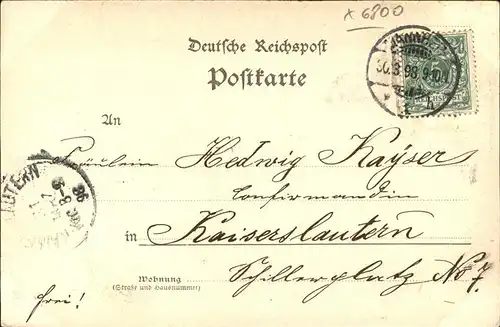 x 6800
Deutsche Reichspost
Postkarte
MANNHEIM
30.3.98 9-10N
REICHSPOST
An
Fräulein Hedwig Kayser
Confirmandin
in Kaiserslautern
Wohnung
(Straße und Hausnummer)
Schillerplatz No 7.
frei!